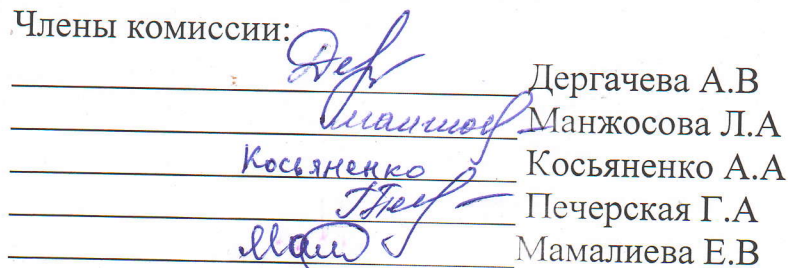 Члены комиссии:
Дер Дергачева А.В
Манжос Манжосова Л.А
Косьяненко Косьяненко А.А
Печ Печерская Г.А
Мам Мамалиева Е.В